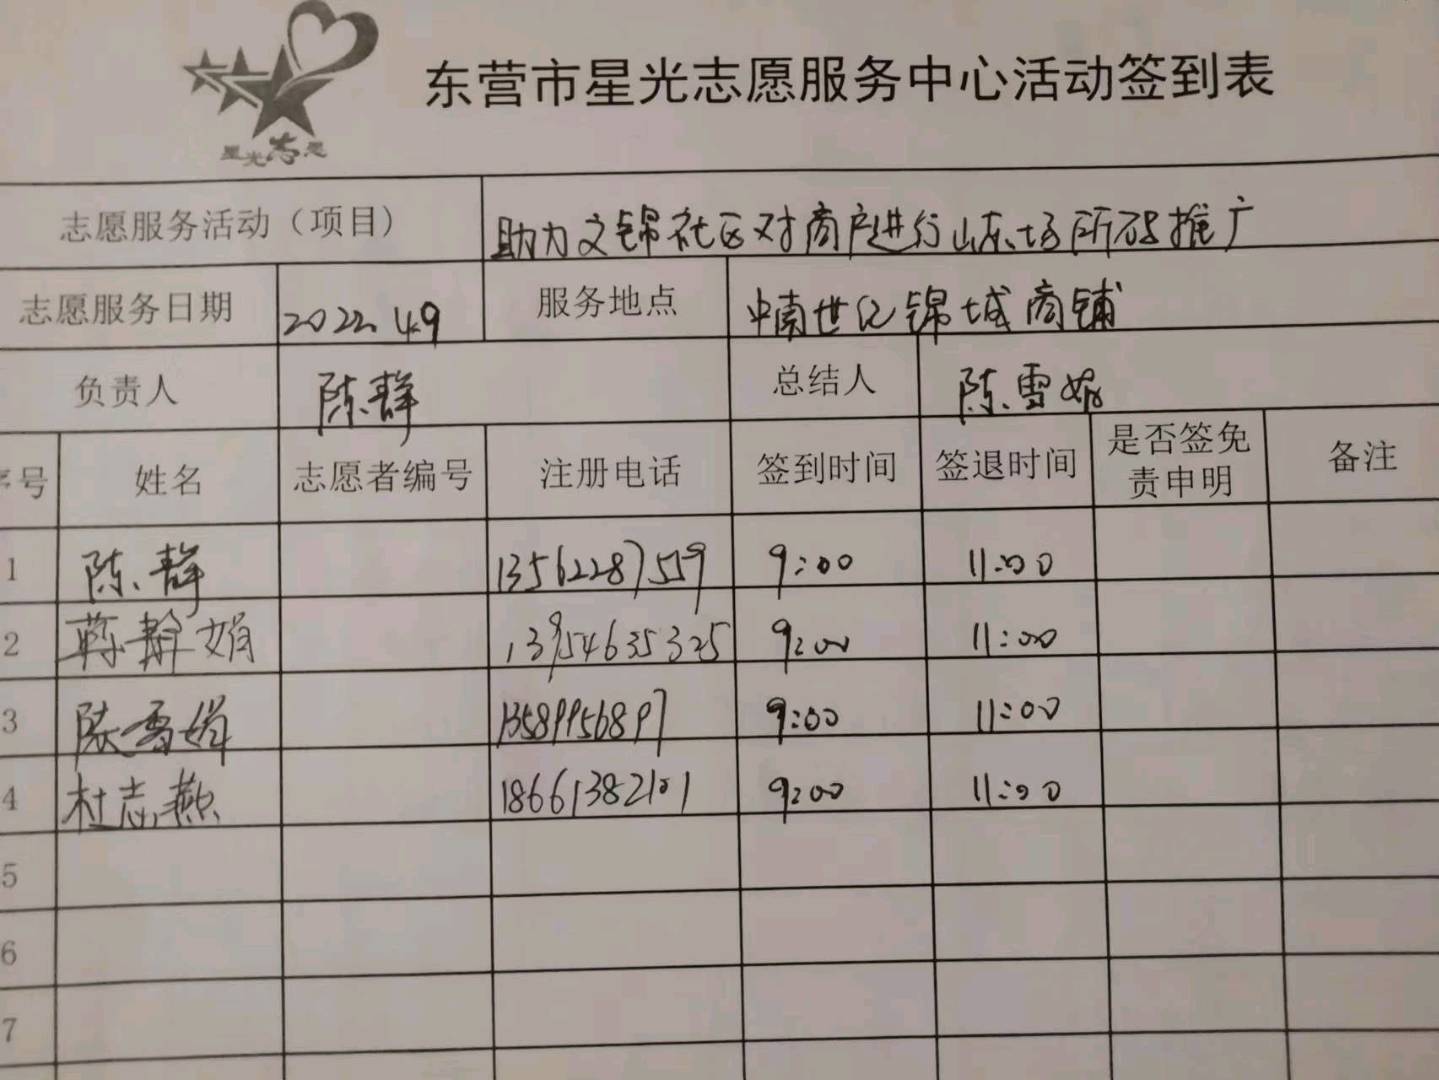 星光志愿
东营市星光志愿服务中心活动签到表
志愿服务活动（项目） 助力文锦社区对商户进行山东场所码推广
志愿服务日期 2022.4.9 服务地点 中南世纪锦城商铺
负责人 陈静 总结人 陈雪娟
序号 姓名 志愿者编号 注册电话 签到时间 签退时间 是否签免责申明 备注
1 陈静 13562287559 9:00 11:00
2 蒋翰娟 13954635325 9:00 11:00
3 陈雪娟 13589956897 9:00 11:00
4 杜志燕 18661382101 9:00 11:00
5
6
7